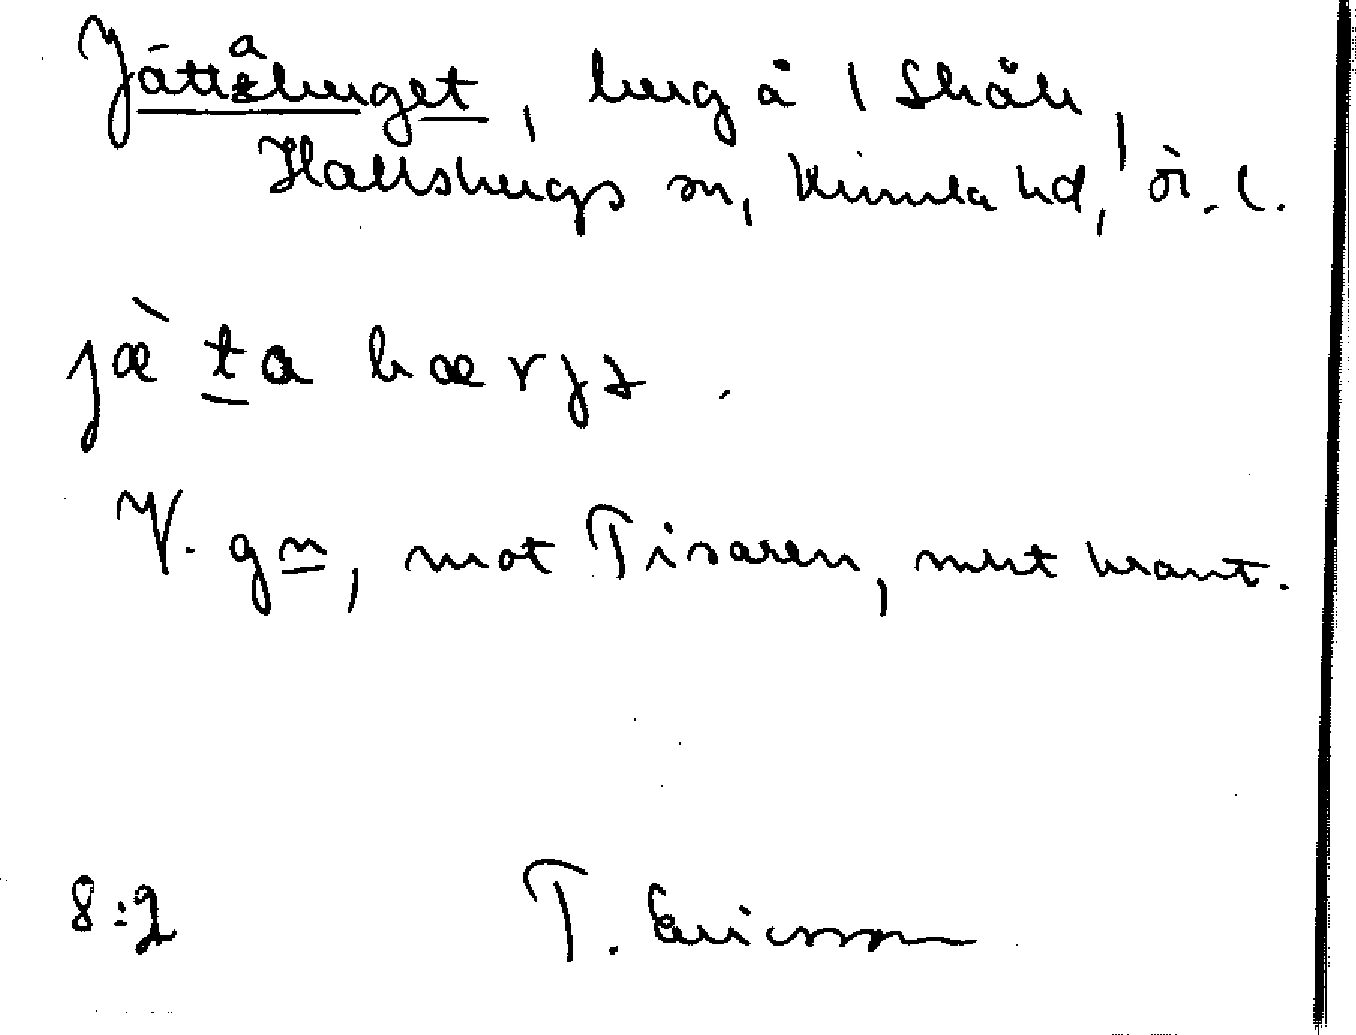 Jättaberget, berg å 1 Skåle,
Hallsbergs sn, Kumla hd, Ö. l.
jæ̀ta bærjɜ.
V. gm, mot Tisaren, mkt brant.
8:2 T. Ericsson